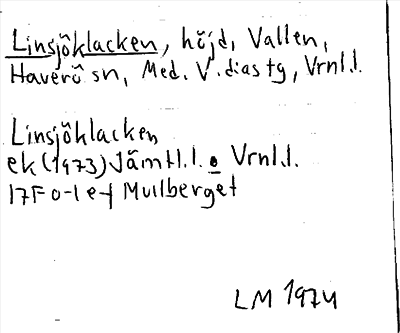 Linsjöklacken, höjd, Vallen,
Haverö sn, Med. V. diastg, Vrnl.l.
Linsjöklacken
ek (1973) Jämtl.l. o Vrnl.l.
17F 0-1 e-f Mullberget
LM 1974